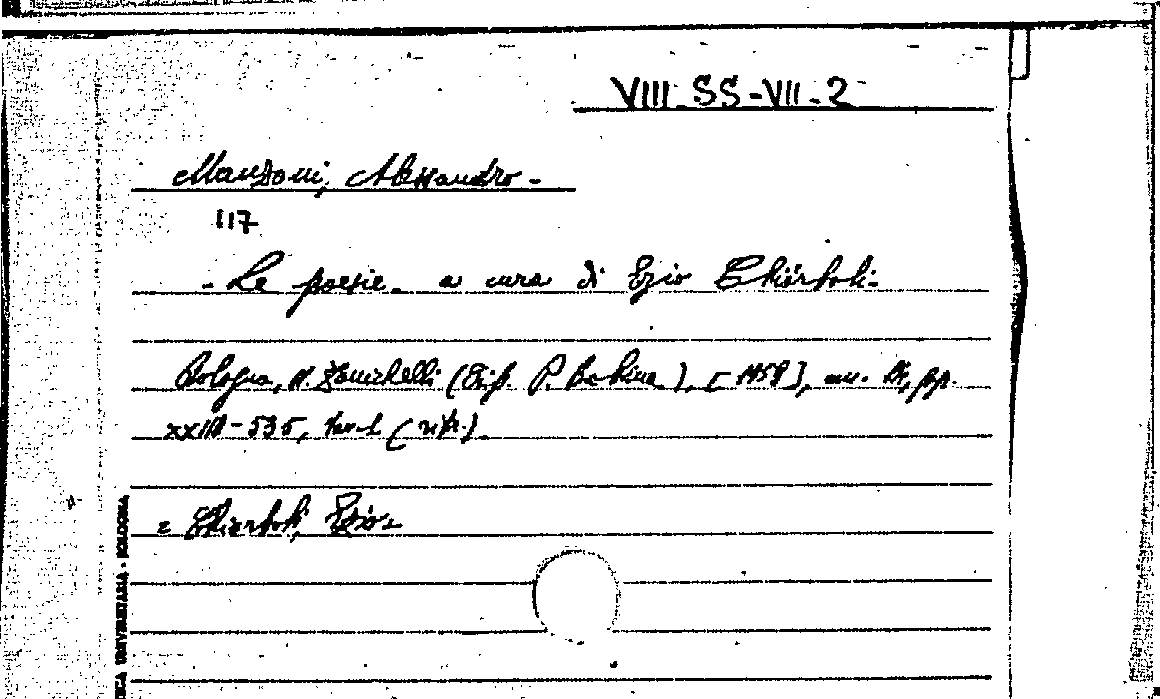 VIII-SS-VII-2
Manzoni, Alessandro -
117
- Le poesie - a cura di Ezio Chiòrboli -
Bologna, N. Zanichelli (Tip. P. ), [1958], pp.
XXIII-535, (ritr.).
= Chiorboli, Ezio -
UNIVERSITARIA - BOLOGNA